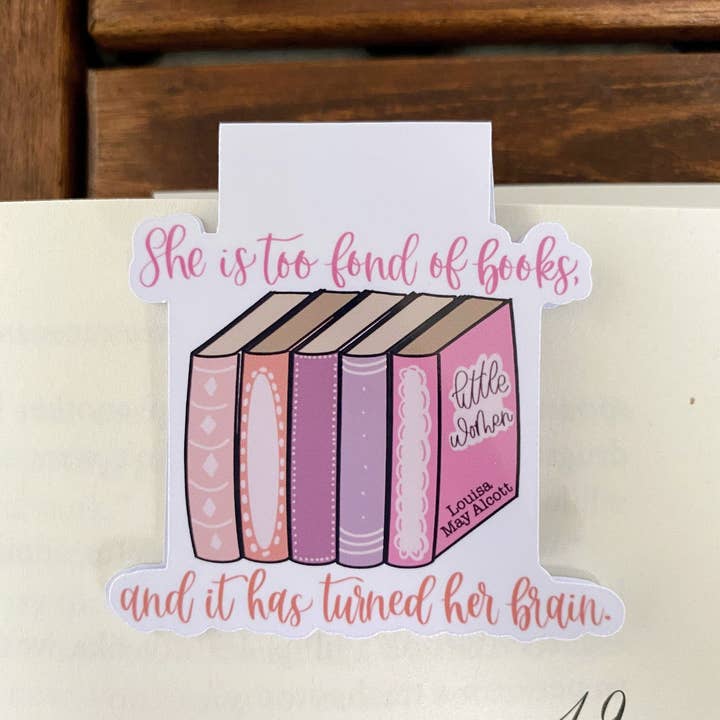 She is too fond of books,
little
women
Louisa
May Alcott
and it has turned her brain.